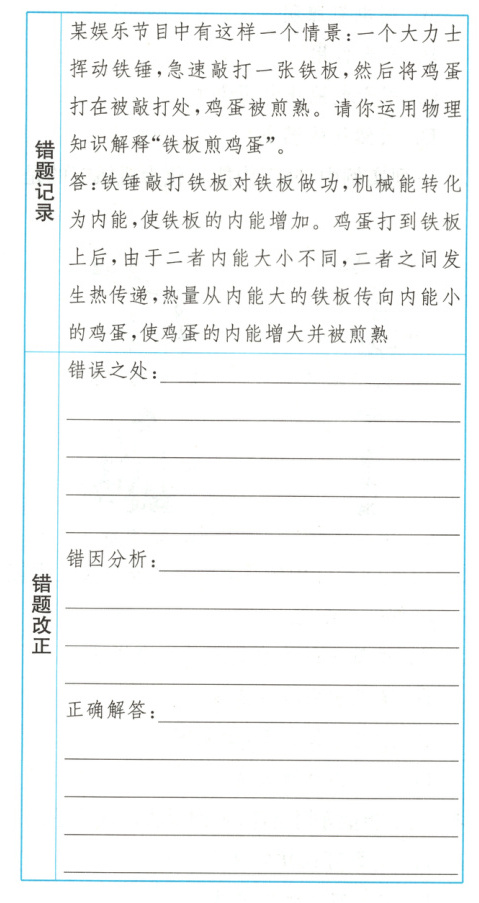 错题记录
某娱乐节目中有这样一个情景:一个大力士
挥动铁锤,急速敲打一张铁板,然后将鸡蛋
打在被敲打处,鸡蛋被煎熟。请你运用物理
知识解释“铁板煎鸡蛋”。
答:铁锤敲打铁板对铁板做功,机械能转化
为内能,使铁板的内能增加。鸡蛋打到铁板
上后,由于二者内能大小不同,二者之间发
生热传递,热量从内能大的铁板传向内能小
的鸡蛋,使鸡蛋的内能增大并被煎熟
错题改正
错误之处:
错因分析:
正确解答: